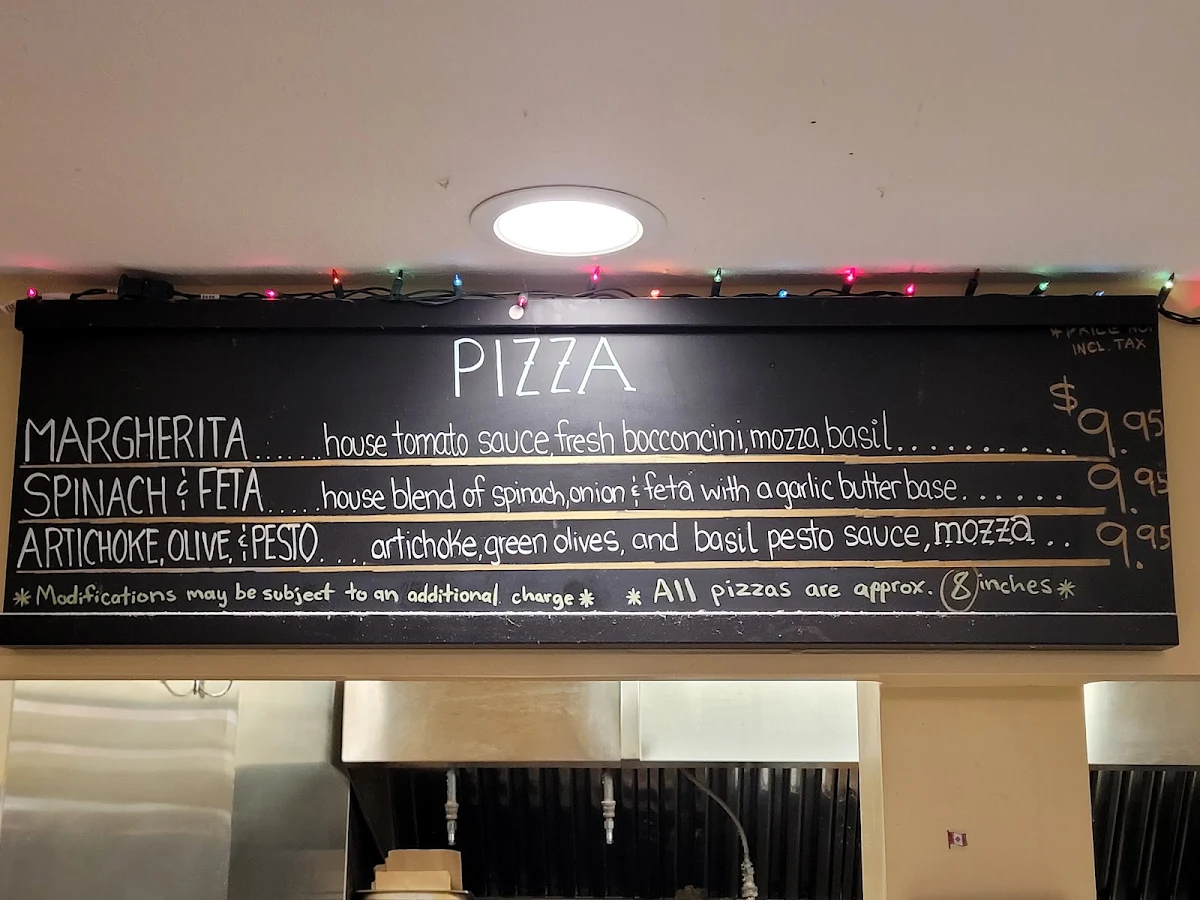 PIZZA
*PRICE NOT
INCL. TAX
$
MARGHERITA.......house tomato sauce, fresh bocconcini, mozza, basil.......... 9.95
SPINACH & FETA......house blend of spinach, onion & feta with a garlic butter base....... 9.95
ARTICHOKE, OLIVE, & PESTO.....artichoke, green olives, and basil pesto sauce, mozza... 9.95
*Modifications may be subject to an additional charge* *All pizzas are approx. 8 inches*